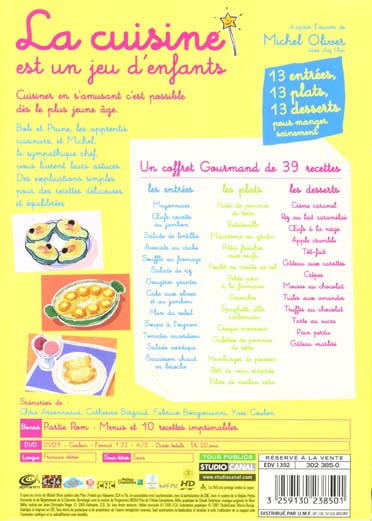 La cuisine
est un jeu d'enfants
d'après l'œuvre de
Michel Oliver
Cuisiner en s'amusant c'est possible
dès le plus jeune âge.
13 entrées,
13 plats,
13 desserts
pour manger
sainement
Bob et Prune, les apprentis
cuisiniers, et Michel,
le sympathique chef,
vous livrent leurs astuces.
Des explications simples
pour des recettes délicieuses
et équilibrées
Un coffret Gourmand de 39 recettes
les entrées
Mayonnaise
Œufs cocotte
au jambon
Salade de lentilles
Avocats au crabe
Soufflé au fromage
Salade de riz
Gougères géantes
Cake aux olives
et au jambon
Flan du soleil
Soupe à l'oignon
Tomates accordéon
Salade nordique
Saucisson chaud
en brioche
les plats
Purée de pommes
de terre
Ratatouille
Macaronis au gratin
Pâtes fraîches
aux œufs
Poulet en croûte de sel
Petits pois
à la française
Gnocchis
Spaghetti alla
carbonara
Croque-monsieur
Galettes de pommes
de terre
Hamburger de poisson
Rôti de veau surprise
Filets de merlan
les desserts
Crème caramel
Riz au lait caramélisé
Œufs à la neige
Apple crumble
Tôt-fait
Gâteau aux carottes
Crêpes
Mousse au chocolat
Tuiles aux amandes
Truffes au chocolat
Tarte au sucre
Pain perdu
Gâteau marbré
Scénarios de
Chris Arsonneaud, Catherine Bergaud, Fabrizio Bongiovanni, Yves Coulon
Bonus Partie Rom - Menus et 10 recettes imprimables
DVD DVD 9 - Couleur - Format 1.33 - 4/3 - Durée totale : 5h 20mn
Langue Français Stéréo Sous-titres Sans
TOUS PUBLICS
STUDIO CANAL
www.studiocanal.com
RÉSERVÉ À LA VENTE
EDV 1392 302 385-0
3 259130 238501